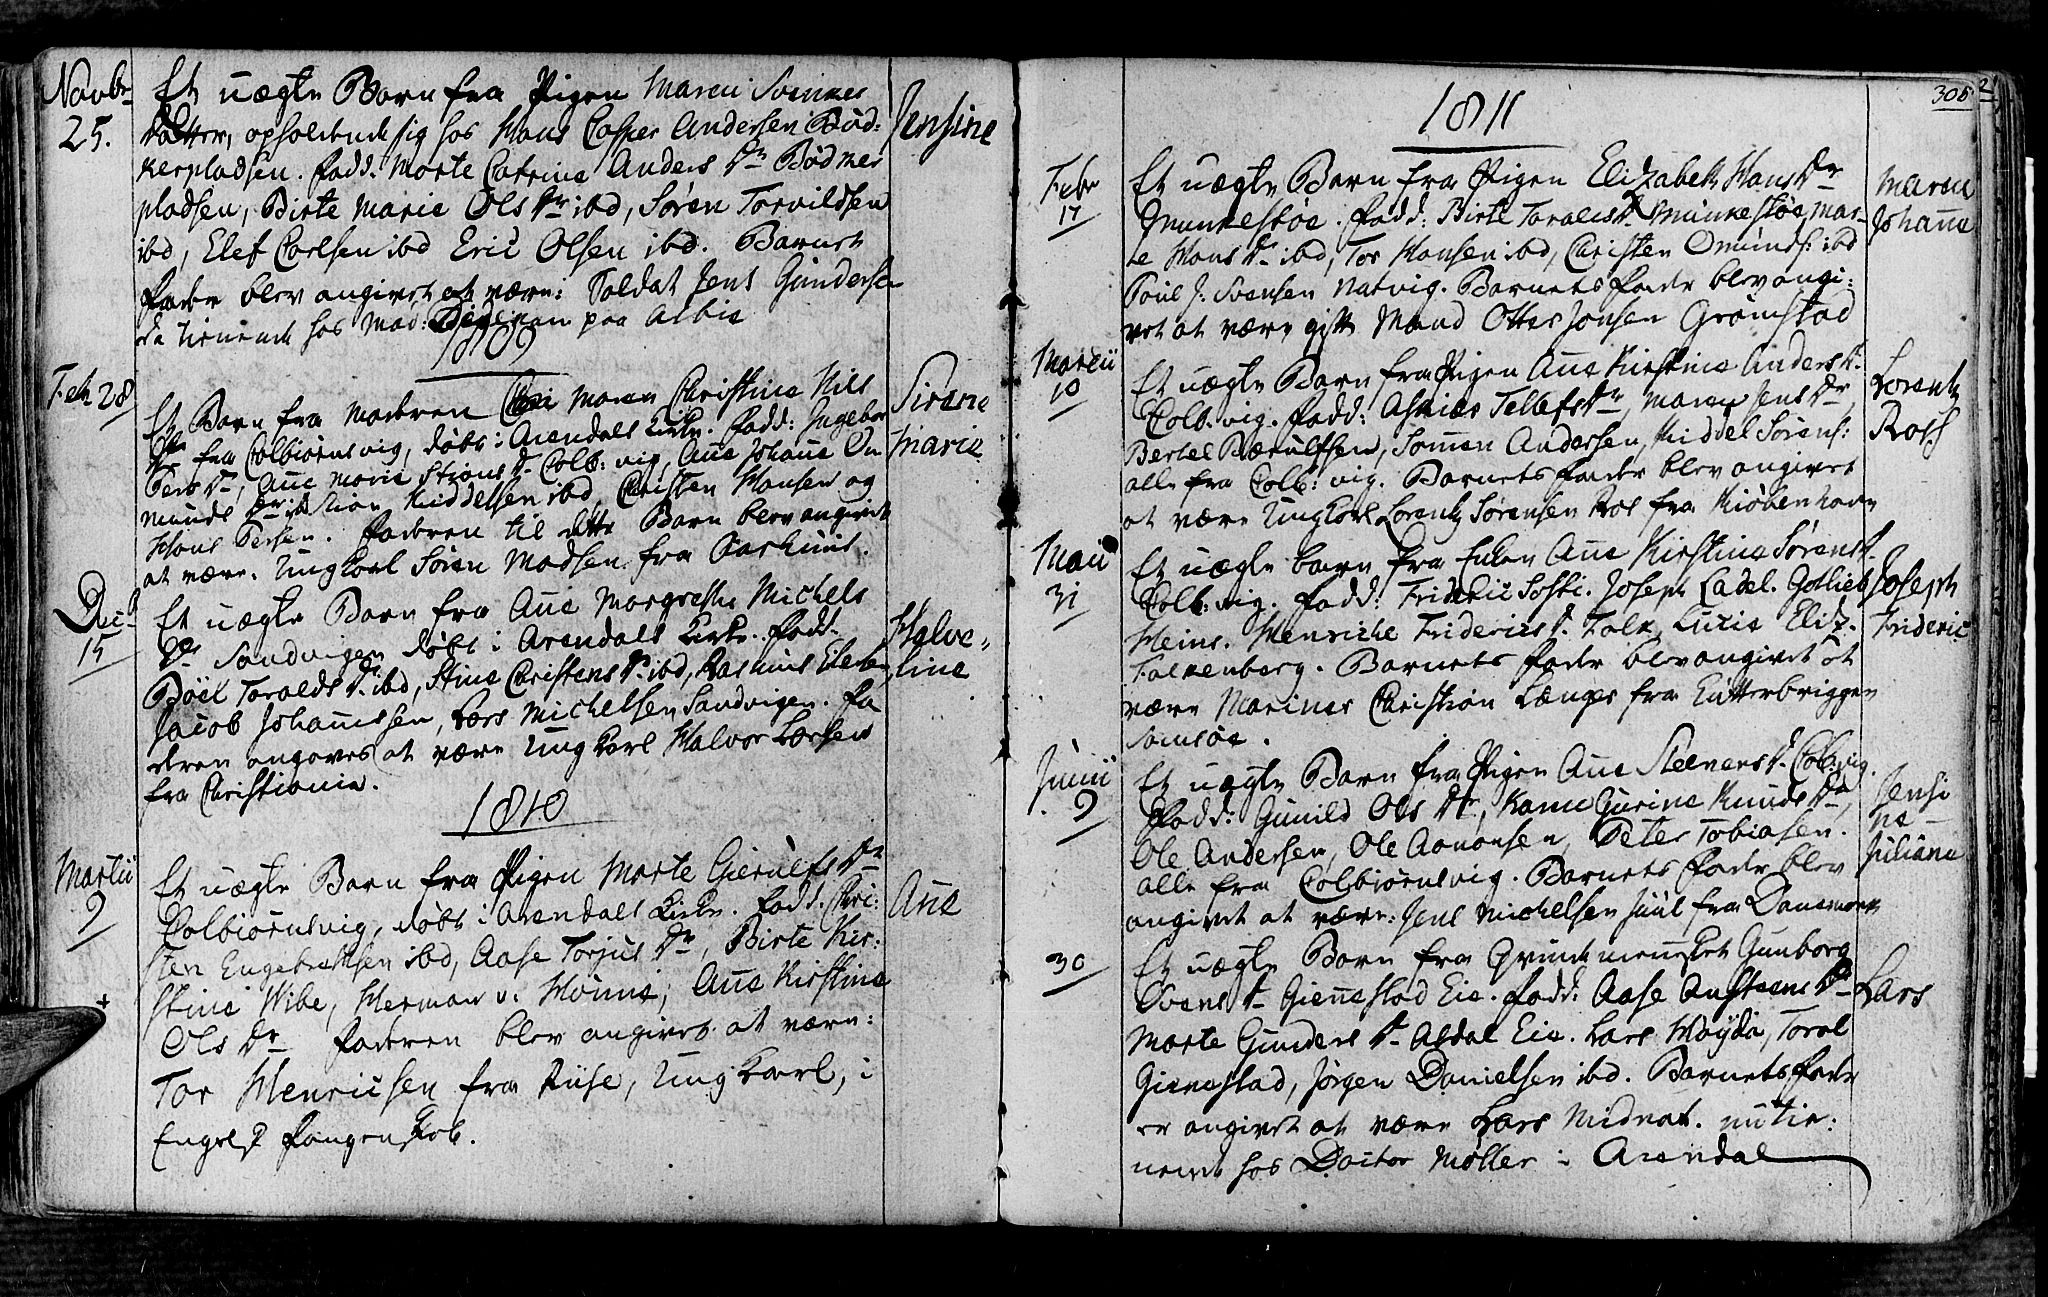 Novbr
25.
Et uægte Barn fra Pigen Maren Svenkes
datter, opholdende sig hos Hans Casper Andersen Bød:
kerpladsen. Fadd: Marte Catrine Anders Dr Bødker
pladsen, Birte Marie Ols Dr ibd, Søren Torvildsen
ibd, Elef Carlsen ibd Eric Olsen ibd. Barnets
Fader blev angivet at være: Soldat Jens Gunderse
da tienende hos Mad: paa Albie
Jensine
1809
Febr 28
Et Barn fra Moderen Maren Christine Nils
Dr fra Colbiørnsvig, døbt i Arendals Kirke. Fadd: Ingebor
Pers Dr, Ane Marie Stians Dr Colb: vig, Ane Johane Om
munds Dr Stian Kiddelsen ibd, Christen Hansen og
Hans Persen. Faderen til dette Barn blev angivet
at være. Ungkarl Søren Madsen fra Aarhuus.
Sirene
Marie
Decb
15
Et uægte Barn fra Ane Margrethe Michels
Dr Sandvigen døbt i Arendals Kirke. Fadd:
Bóel Toralds Dr ibd, Stine Christens Dr ibd, Rasmus
Jacob Johannessen, Lars Michelsen Sandvigen. Fa
deren angaves at være Ungkarl Halvor Larsen
fra Christiania.
Halve-
line
1810
Martii
9
Et uægte Barn fra Pigen Marte Gierulfs Dr
Colbiørnsvig, døbt i Arendals Kirke. Fadd: Chri:
sten Engebretsen ibd, Aase Torjus Dr, Birte Kir:
stine Wibe, Herman v. Hønne, Ane Kirstine
Ols Dr Faderen blev angivet at være:
Tor Henricsen fra Riise, Ungkarl, i
Engelsk Fangenskab.
Ane
305
1811
Febr
17
Et uægte Barn fra Pigen Elizabeth Hans Dr
Munkestøe. Fadd: Birte Toralds Dr Munkestøe, Mar-
te Hans Dr ibd, Tor Hansen ibd, Christen Omunds: ibd
Poul J. Svensen Natvig. Barnets Fader blev angi:
vet at være gift Mand Otter Jonsen Grømstad
Maren
Johane
Martii
10
Et uægte Barn fra Pigen Ane Kirstine Anders Dr.
Colb: vig. Fadd: Tellefs Dr, Maren Jens Dr,
Bertel Bærulfsen, Sømen Andersen, Kiddel Sørens:
alle fra Colb: vig. Barnets Fader blev angivet
at være Ungkarl Lorentz Sørensen Ros fra Kiøbenhavn
Lorentz
Ross
Maii
31
Et uægte barn fra Enken Ane Kirstine Sørens Dr
Colb: vig. Fadd: Frideric Joseph Ladel. Gotlieb
Heins. Henriche Friderics Dr. Falk, Lucie Eliz.
Falkenberg. Barnets Fader blev angivet at
være Mariner Christian Langes fra Cutterbriggen
Samsøe.
Joseph
Frideric
Junii
9
Et uægte Barn fra Pigen Ane Steenens Dr Colb: vig.
Fadd: Gunild Ols Dr, Karen Gurine Knuds Dr,
Ole Andersen, Ole Aanonsen, Peter Tobiasen.
alle fra Colbiørnsvig. Barnets Fader blev
angivet at være: Jens Michelsen Juul fra Danemark
Jensi
ne
Juliane
30
Et uægte Barn fra Qvindemennesket Gunborg
Svens Dr Giennestad Eie. Fadd: Aase Austeens Dr
Marte Gunders Dr Asdal Eie. Lars Høyda, Toral
Giennestad, Jørgen Danielsen ibd. Barnets Fader
er angivet at være Lars Midnat. nu tie:
nende hos Doctor Møller i Arendal
Lars